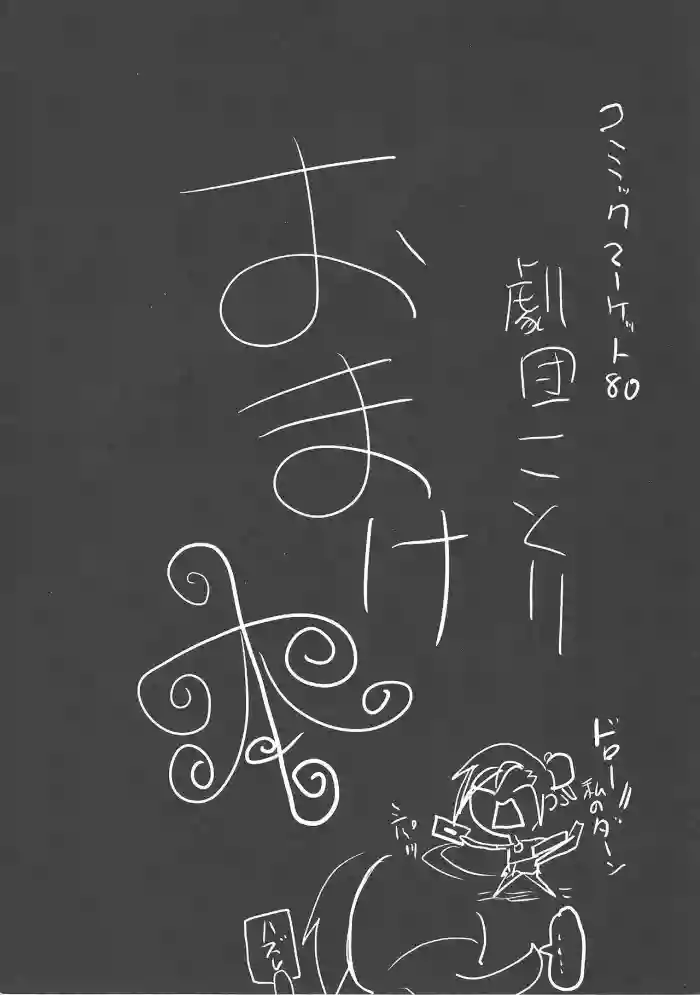 コミックマーケット80
劇団ことり
おまけ
本
ドロー!!
私のターン
ハズレ
……